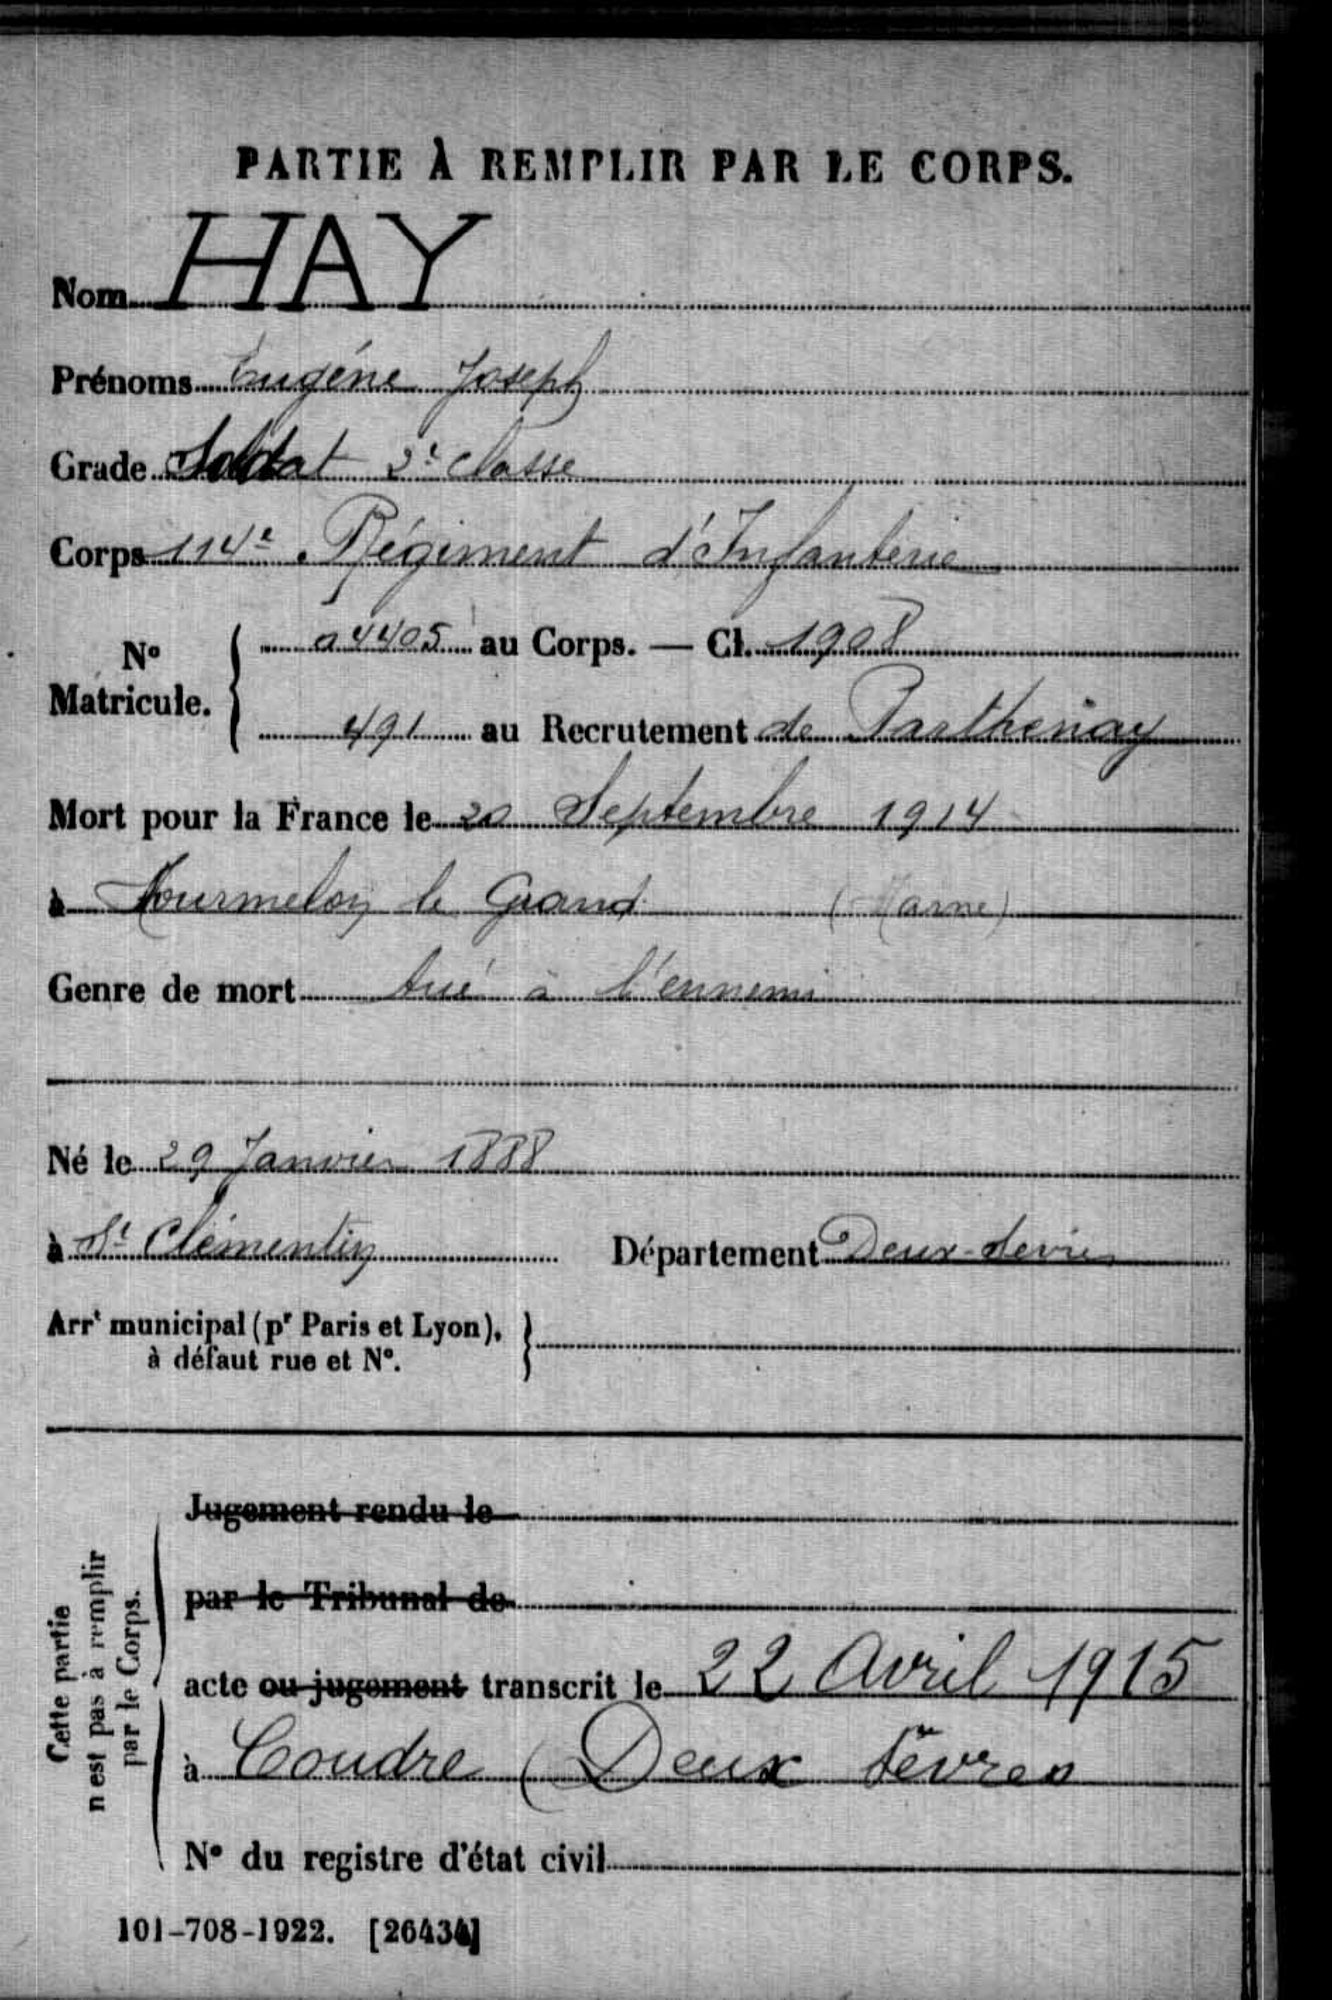 PARTIE À REMPLIR PAR LE CORPS.
Nom HAY
Prénoms Eugéne Joseph
Grade Soldat 2e classe
Corps 114e Régiment d'Infanterie
No Matricule. { 04405 au Corps. — Cl. 1908
491 au Recrutement de Parthenay
Mort pour la France le 20 Septembre 1914
à Mourmelon le Grand (Marne)
Genre de mort tué à l'ennemi
Né le 29 Janvier 1888
à St Clémentin Département Deux-Sevres
Arrt municipal (pr Paris et Lyon),
à défaut rue et No.
Cette partie
n'est pas à remplir
par le Corps.
Jugement rendu le
par le Tribunal de
acte ou jugement transcrit le 22 Avril 1915
à Coudre (Deux Sèvres
No du registre d'état civil
101-708-1922. [26434]